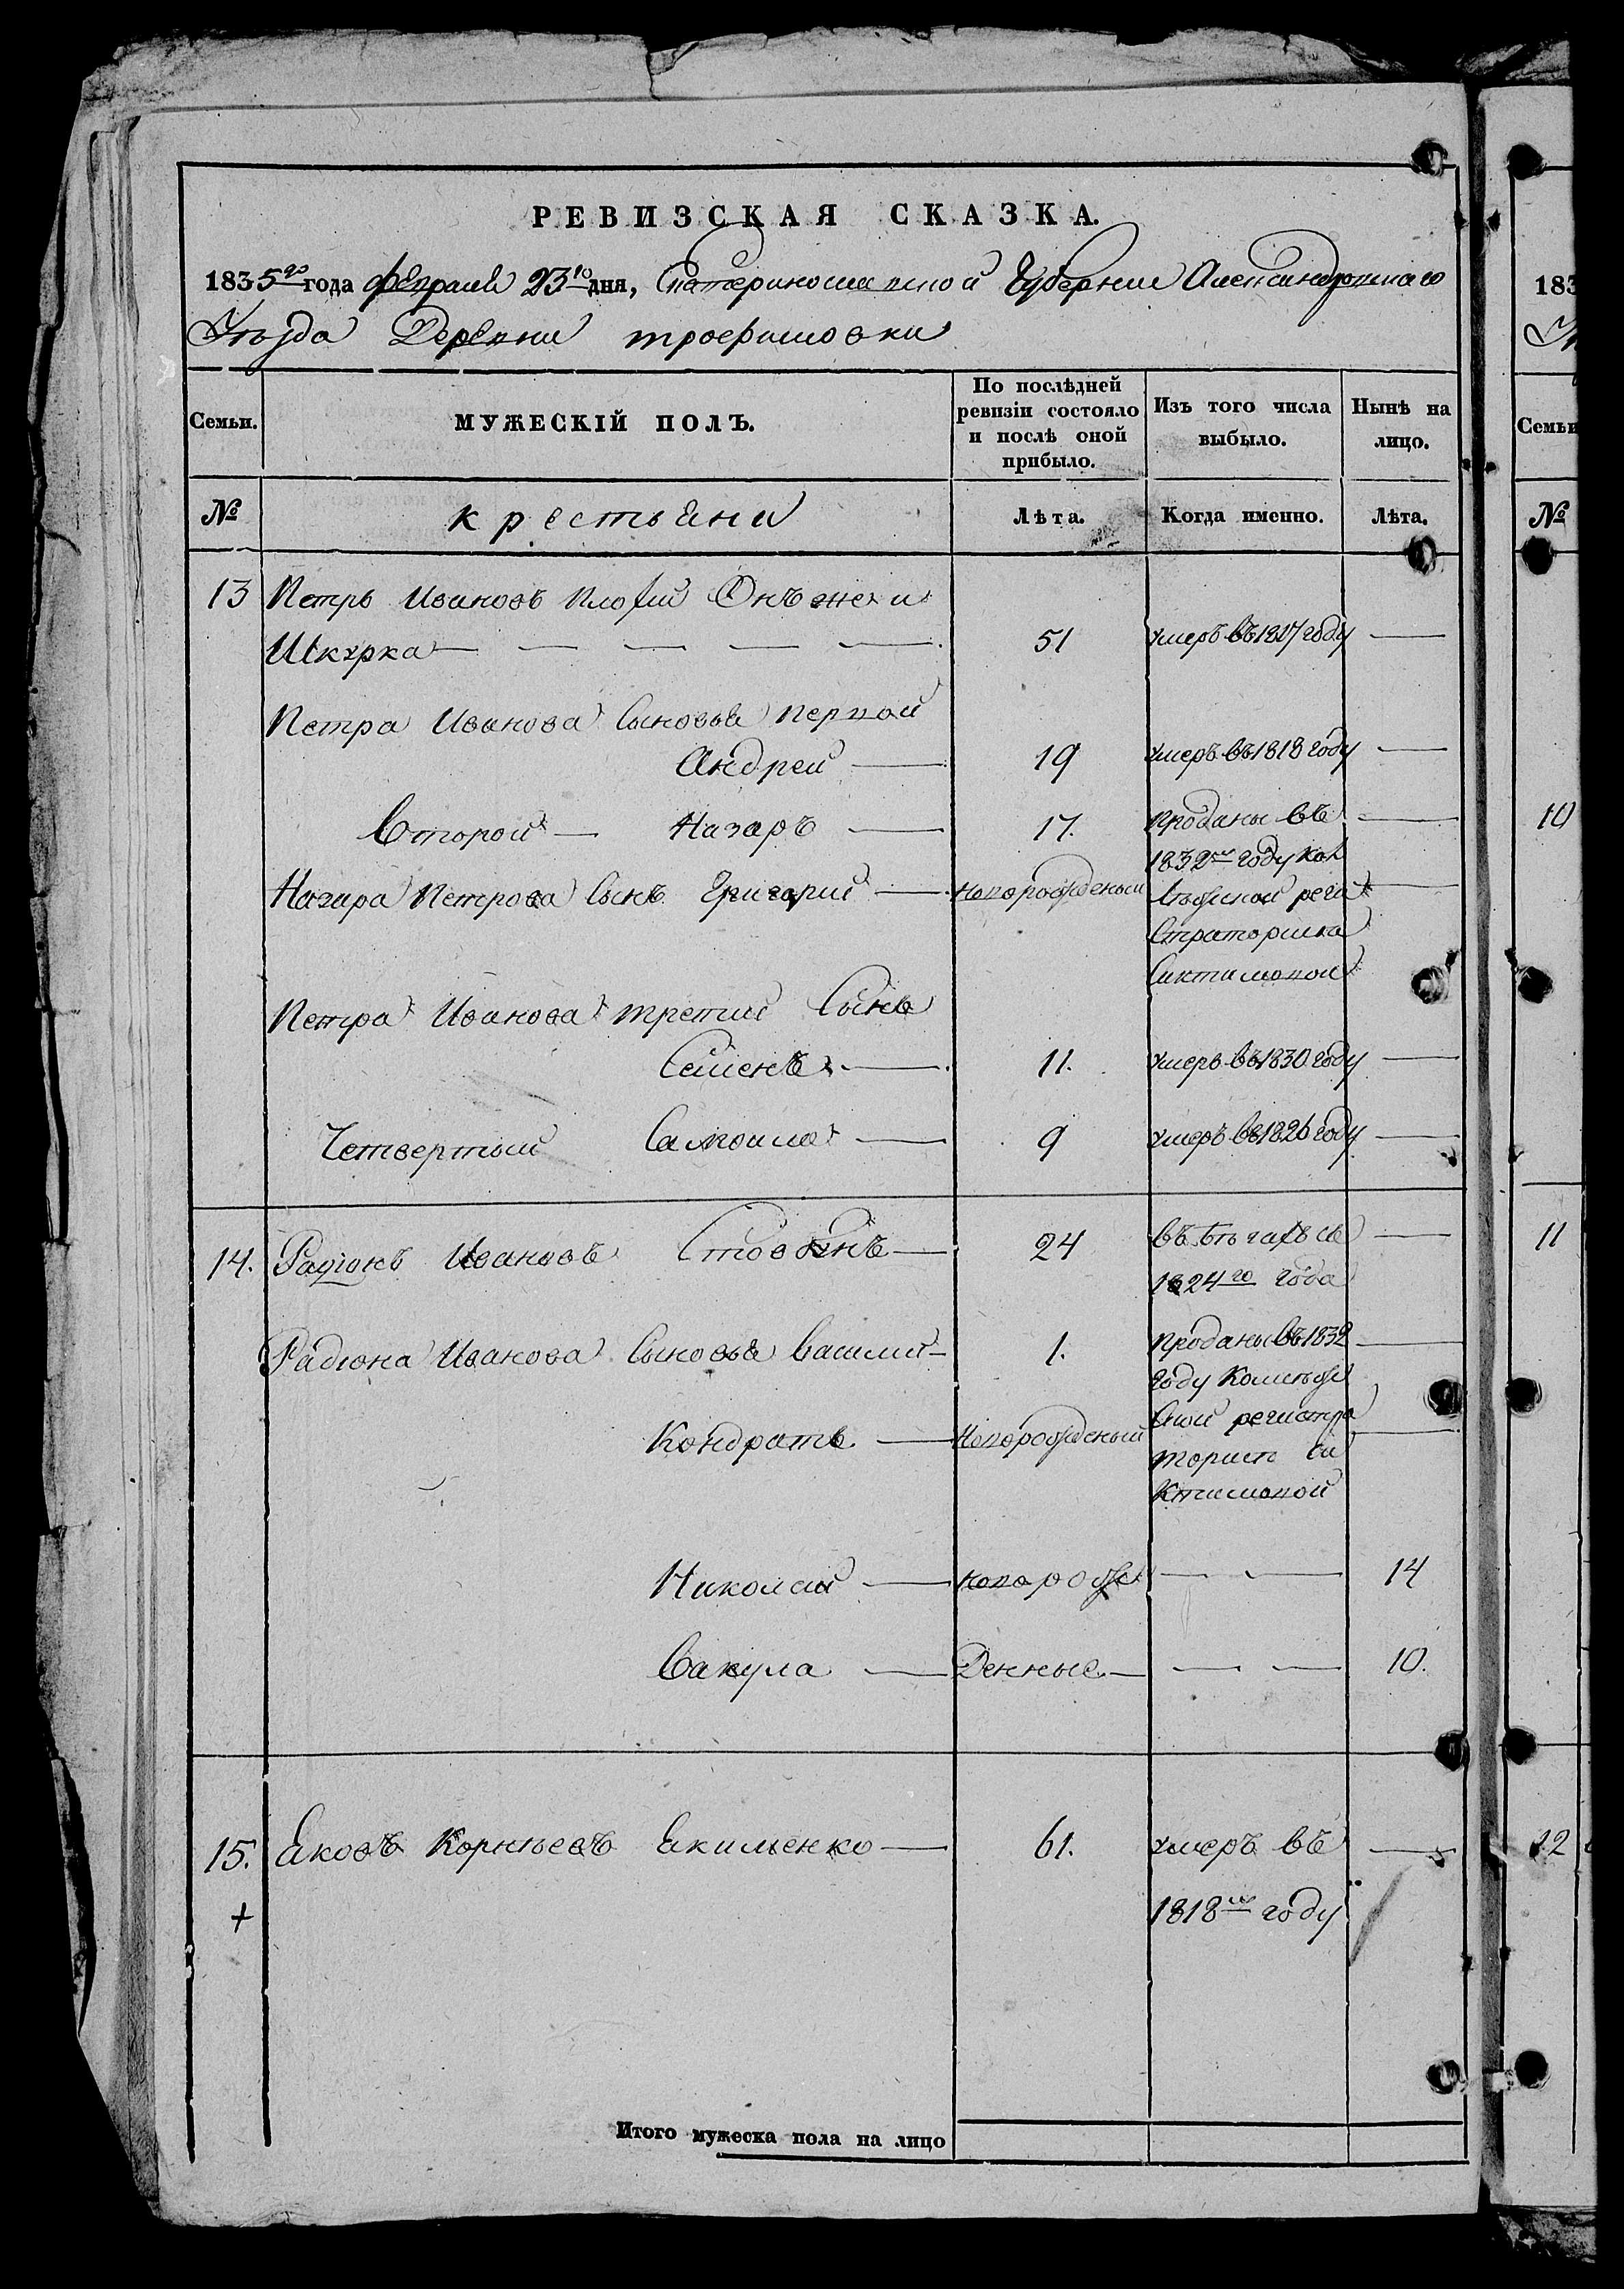 РЕВИЗСКАЯ СКАЗКА.
1835го года февраля 23го дня, Екатеринославской Губернии Александровскаго
Уезда Деревни трофимовки
Семьи.
МУЖЕСКІЙ ПОЛЪ.
По послѣдней ревизіи состояло и послѣ оной прибыло.
Изъ того числа выбыло.
Нынѣ на лицо.
№
крестьяни
Лѣта.
Когда именно.
Лѣта.
13 Петръ Ивановъ
Шкурка 51 умеръ въ 1817 году
Петра Иванова Сыновья первой
Андрей 19 умеръ въ 1818 году
Второй Назаръ 17. проданы въ
1832м году кол
Назара Петрова Сынъ Григорий новорожденый лѣжской реги
страторши
Сиктимовой
Петра Иванова третий Сынъ
Семенъ 11. умеръ въ 1830 году
Четвертый Самойла 9 умеръ въ 1826 году
14. Радіонъ Ивановъ 24 въ бѣгахъ съ
1824го года
Радіона Иванова Сыновья Василий 1. проданы въ 1832
году Колѣж
Кондратъ Новорожденый ской регистра
торше Си
ктимовой
Николай новорож 14
Вакула Денные 10.
15. Яковъ Корнѣевъ Якименко 61. умеръ въ
+ 1818м году
Итого мужеска пола на лицо
183
Семьи
№
10
11
12